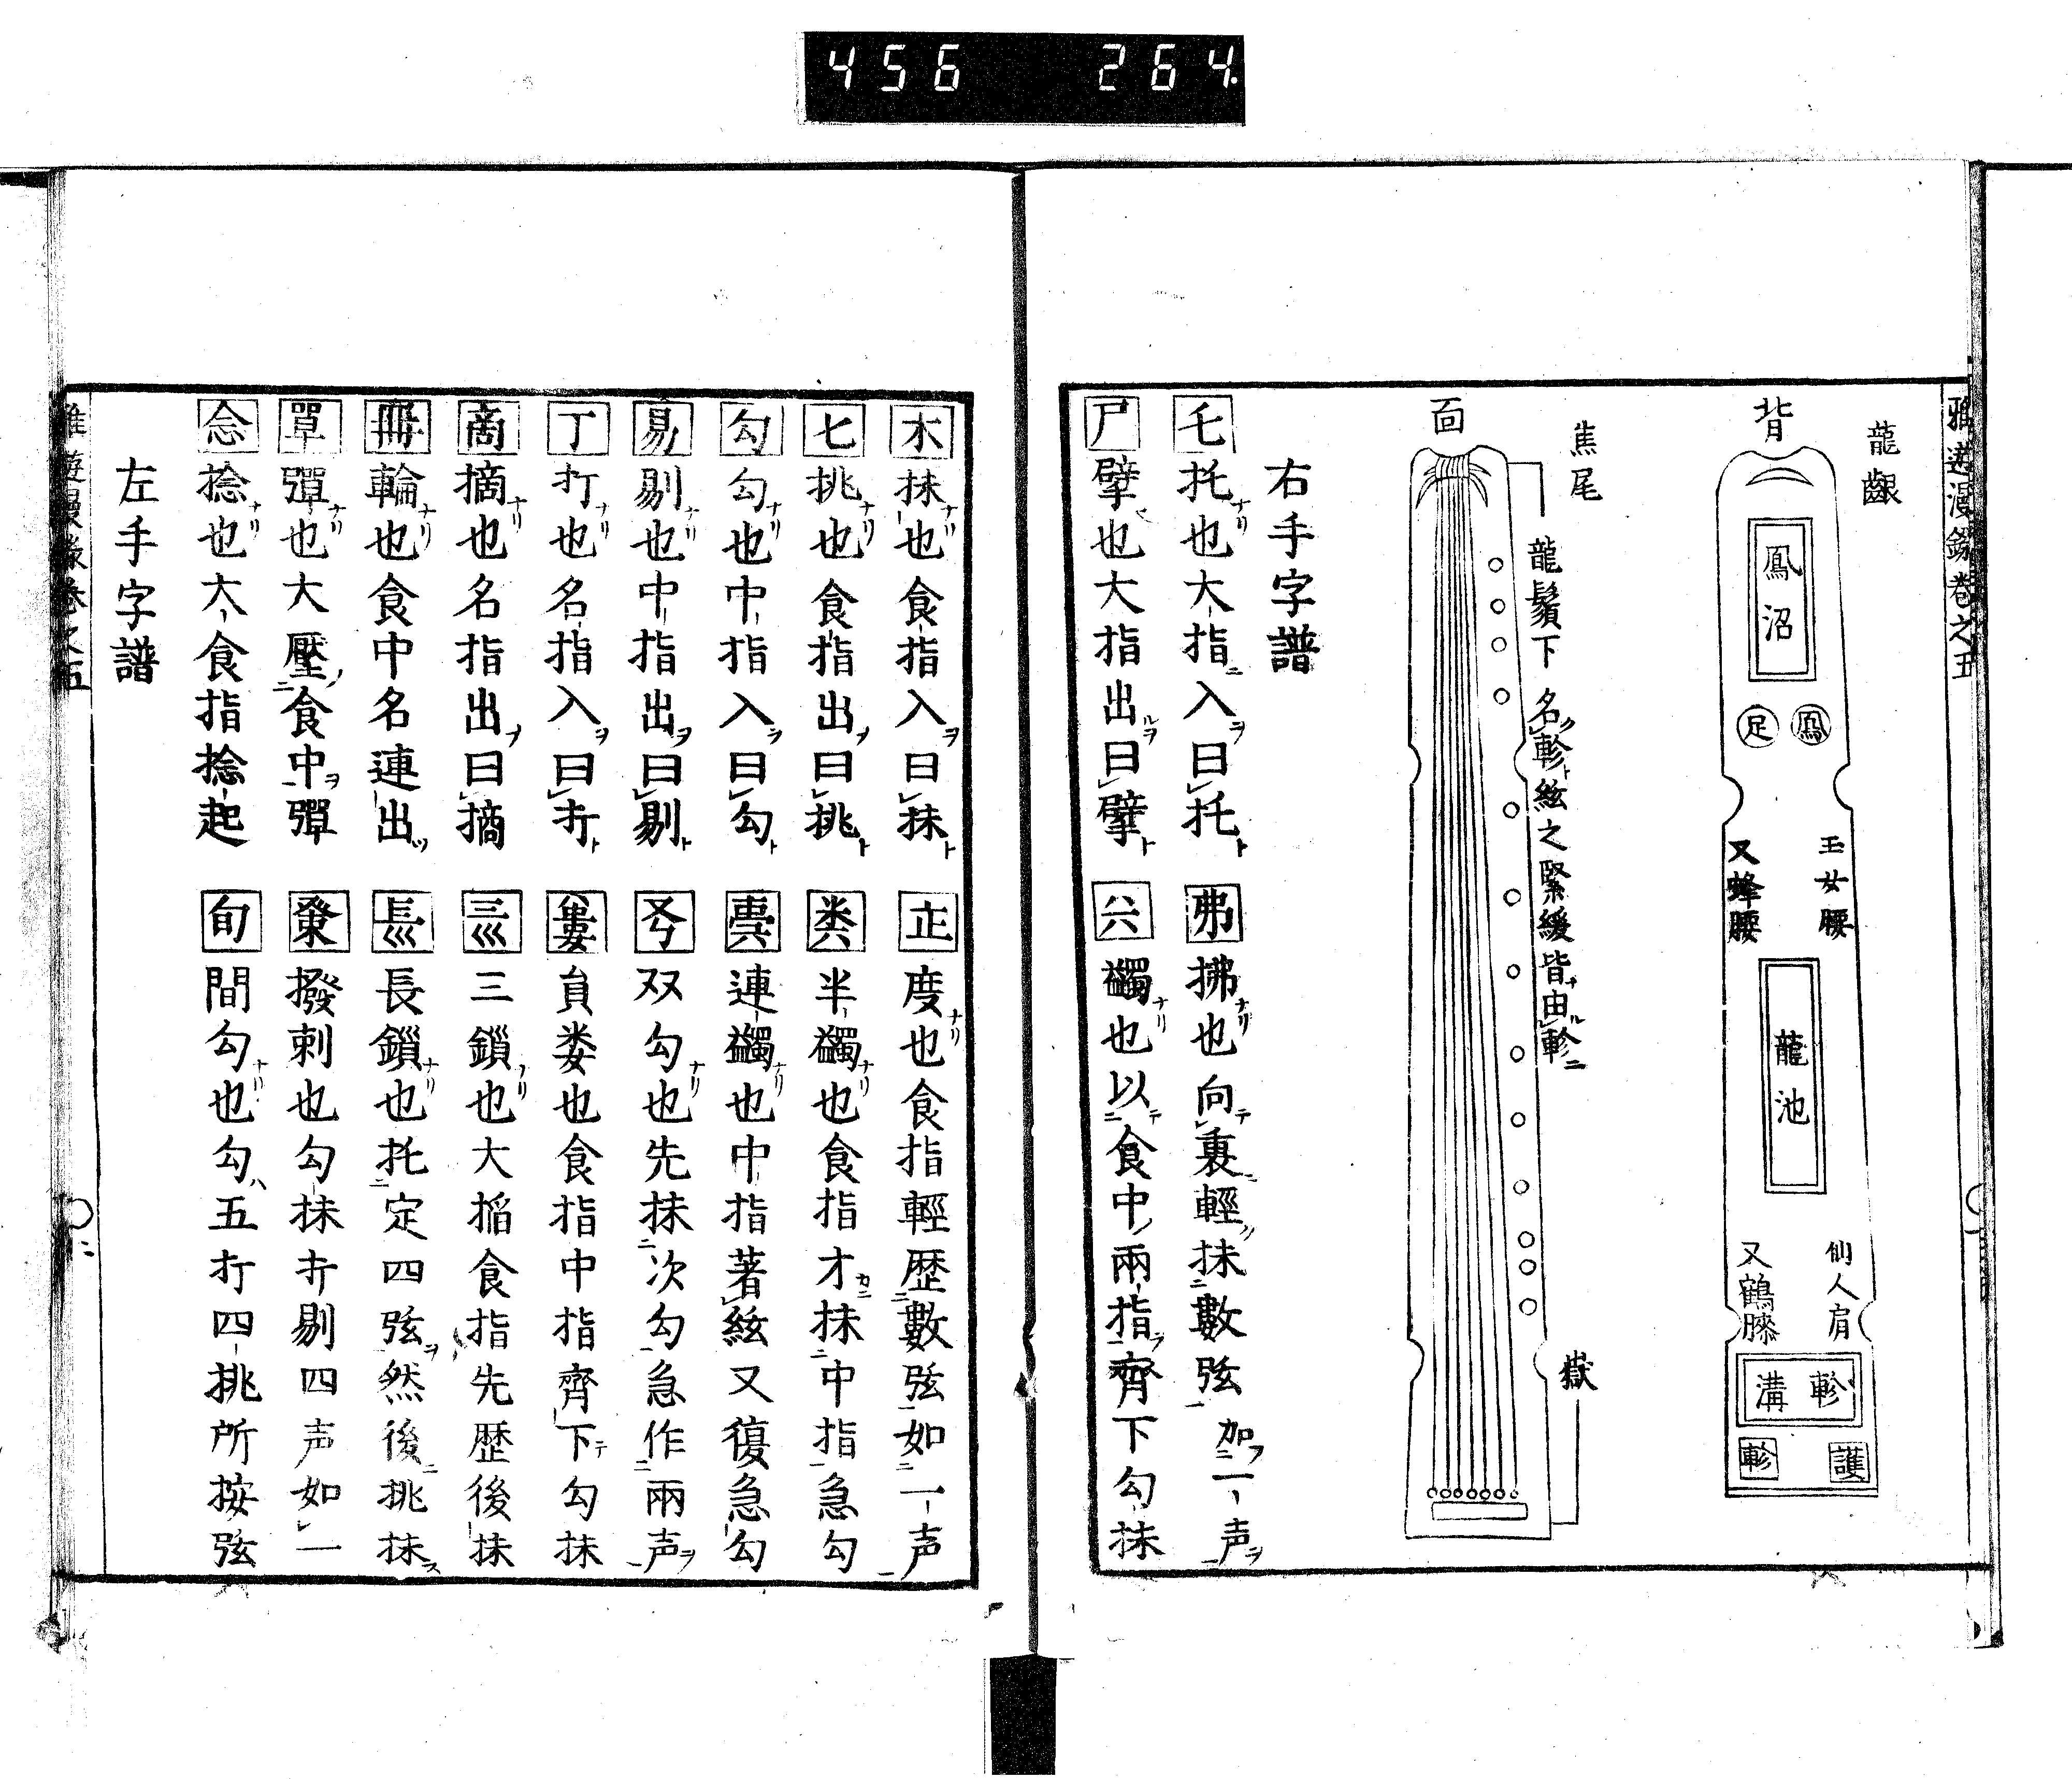 456 264.
雅遊漫録巻之五
龍齦
背
鳳沼
鳳足
玉女腰
又蜂腰
龍池
仙人肩
又鶴膝
軫溝
護軫
焦尾
面
龍鬚下名軫絃之緊緩皆由軫
嶽
右手字譜
乇 托也大指入曰托
弗 拂也向裏輕抹數弦如一声
尸 擘也大指出曰擘
蠲也以食中兩指齊下勾抹
木 抹也食指入曰抹
度也食指輕歷數弦如一声
七 挑也食指出曰挑
半蠲也食指才抹中指急勾
勾 勾也中指入曰勾
連蠲也中指著絃又復急勾
易 剔也中指出曰剔
双勾也先抹次勾急作兩声
丁 打也名指入曰打
負娄也食指中指齊下勾抹
啇 摘也名指出曰摘
三鎖也大搯食指先歷後抹
冊 輪也食中名連出
長鎖也托定四弦然後挑抹
單 彈也大壓食中彈
撥剌也勾抹打剔四声如一
念 捻也大食指捻起
旬 間勾也勾五打四挑所按弦
左手字譜
雅遊漫録巻之五
二